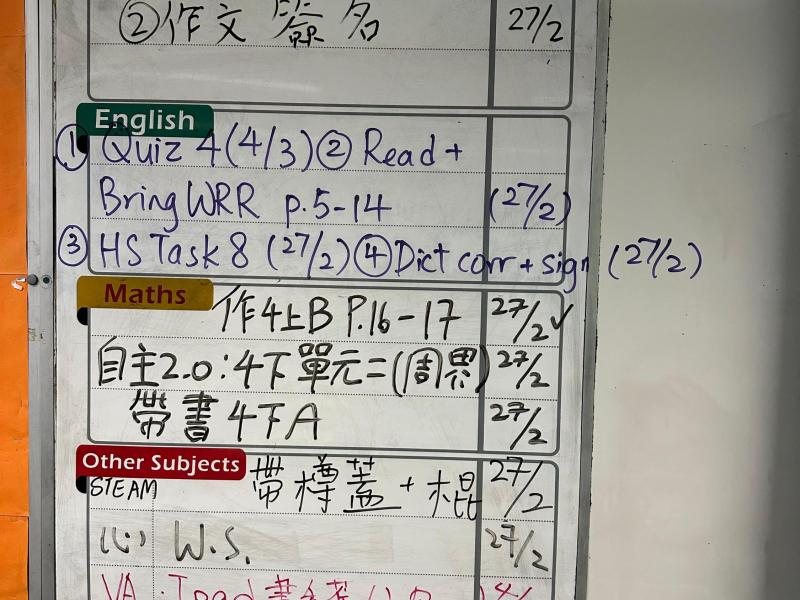 ②作文 簽名 27/2
English
① Quiz 4(4/3)② Read +
Bring WRR p.5-14 (27/2)
③ HS Task 8 (27/2)④Dict corr + sign (27/2)
Maths
作4上B P.16-17 27/2✓
自主2.0:4下單元二(周界) 27/2
帶書4下A 27/2
Other Subjects
STEAM 帶樽蓋 + 棍 27/2
(心) W.S. 27/2
VA